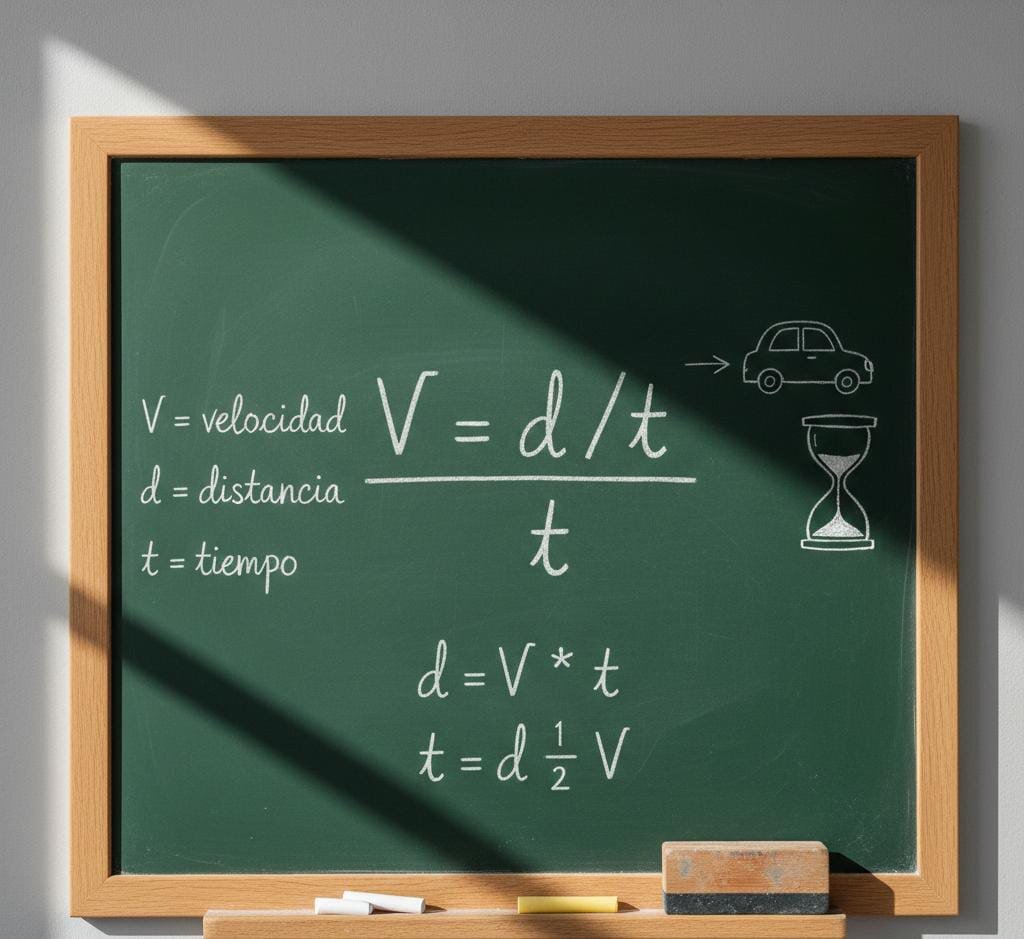 V = velocidad
d = distancia
t = tiempo
V = d/t
t
d = V * t
t = d 1/2 V